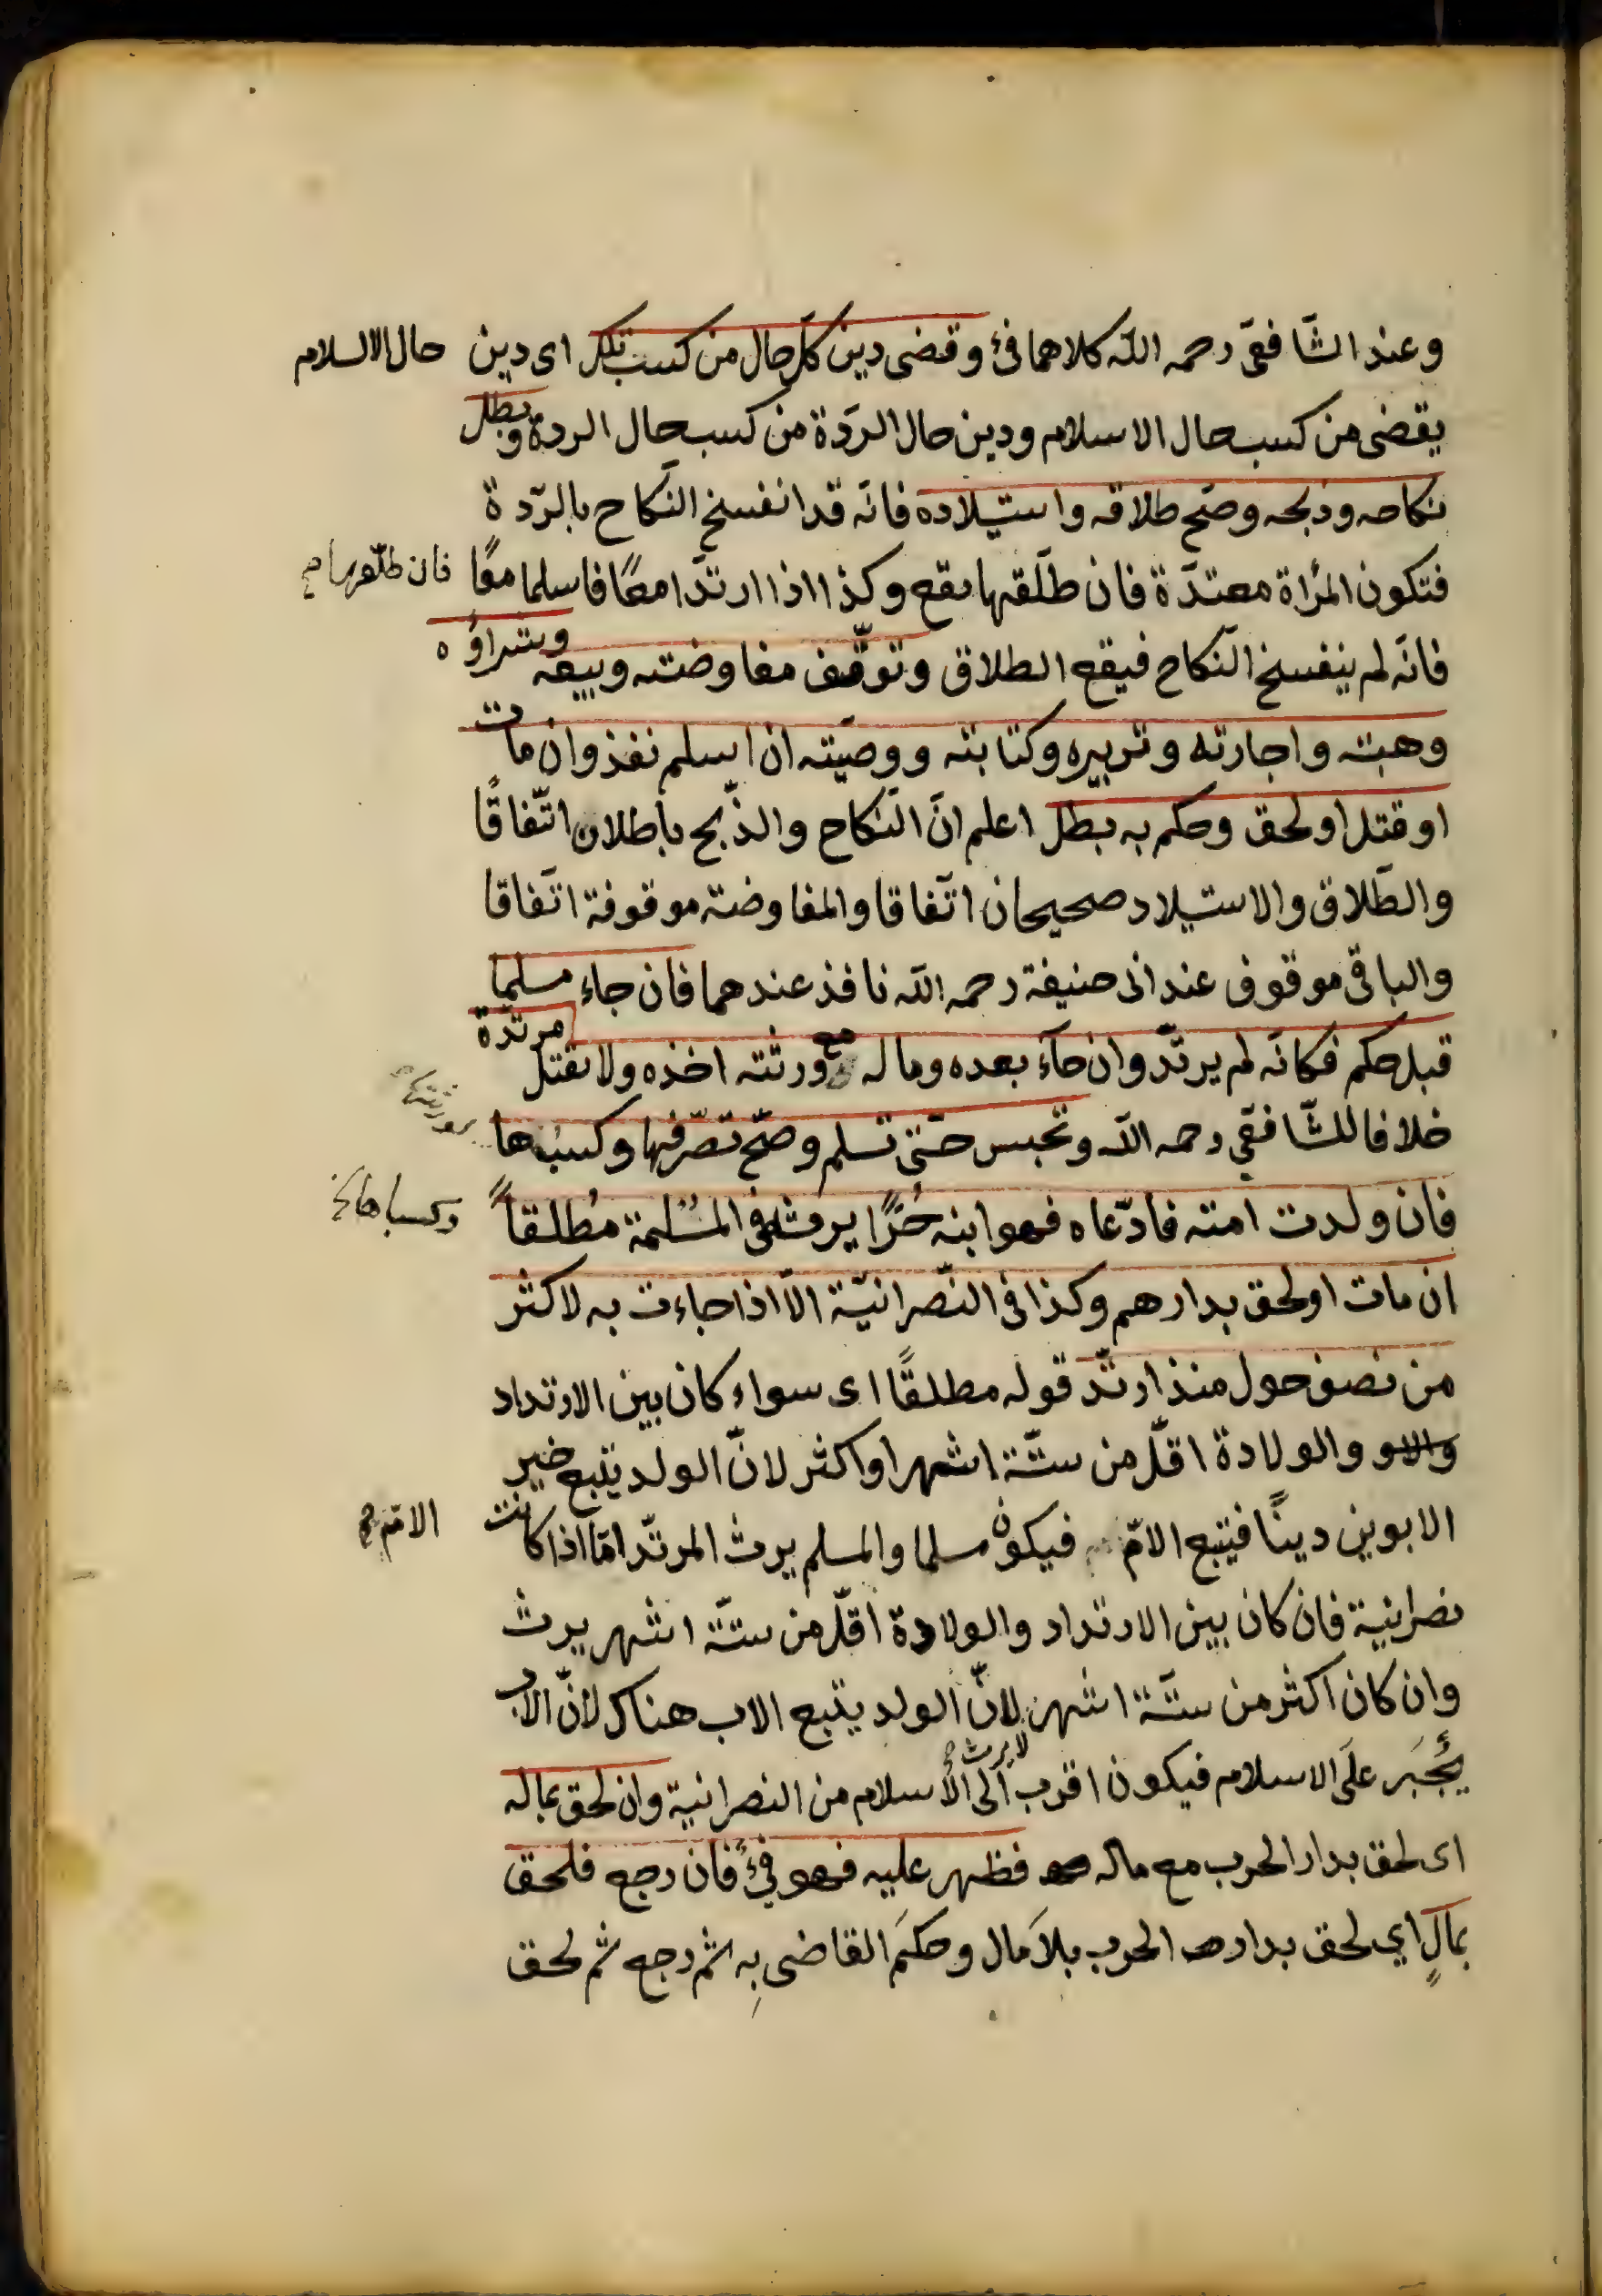 وعند الشّافعىّ رحمه اللّه كلاهما فئ وقضى دين كلّ حال من كسب تلك اى دين حال الاسلام
يقضى من كسب حال الاسلام ودين حال الردّة من كسب حال الردة وبطل
نكاحه وذبحه وصحّ طلاقه واستيلاده فانّه قد انفسخ النّكاح بالرّدة
فتكون المرأة معتدّة فان طلّقها يقع وكذا اذا ارتدّا معًا فاسلما معًا فان طلّقها صح
فانّه لم ينفسخ النّكاح فيقع الطلاق وتوقّف مفاوضته وبيعه وشراؤه
وهبته واجارته وتدبيره وكتابته ووصيّته ان اسلم نفذ وان مات
او قتل او لحق وحكم به بطل اعلم انّ النّكاح والذّبح باطلان اتّفاقًا
والطّلاق والاستيلاد صحيحان اتّفاقا والمفاوضة موقوفة اتّفاقا
والباقى موقوف عند ابى حنيفة رحمه اللّه نافذ عندهما فان جاء مسلما
قبل حكم فكانّه لم يرتدّ وان جآء بعده وماله مع ورثته اخذه ولا تقتل مرتدّة
خلافا للشّافعّي رحمه اللّه وتحبس حتّى تسلم وصحّ تصرّفها وكسبها
فان ولدت امته فادّعاه فهو ابنه حُرًّا يرثه فى المُسْلمة مُطلقاً وكسباها
ان مات او لحق بدارهم وكذا فى النّصرانيّة الّا اذا جاءت به لاكثر
من نصف حول منذ ارتدّ قوله مطلقًا اى سواء كان بين الارتداد
والاو والولادة اقلّ من ستّة اشهر او اكثر لانّ الولد يتبع خير
الابوين دينًا فيتبع الامّ فيكون مسلما والمسلم يرث المرتدّ امّا اذا كانت الامّ صح
نصرانية فان كان بين الارتداد والولادة اقلّ من ستّة اشهر يرث
وان كان اكثر من ستّة اشهر لانّ الولد يتبع الاب هناك لانّ الاب
لا يرث صح
يُجْبَر علَى الاسلام فيكون اقرب الى الاسلام من النصرانيّة وان لحق بماله
اى لحق بدار الحرب مع ماله فظهر عليه فهو فئ فان رجع فلحق
بمالٍ اي لحق بدار الحرب بلاَ مال وحكمَ القاضى بِه ثم رجع ثم لحق